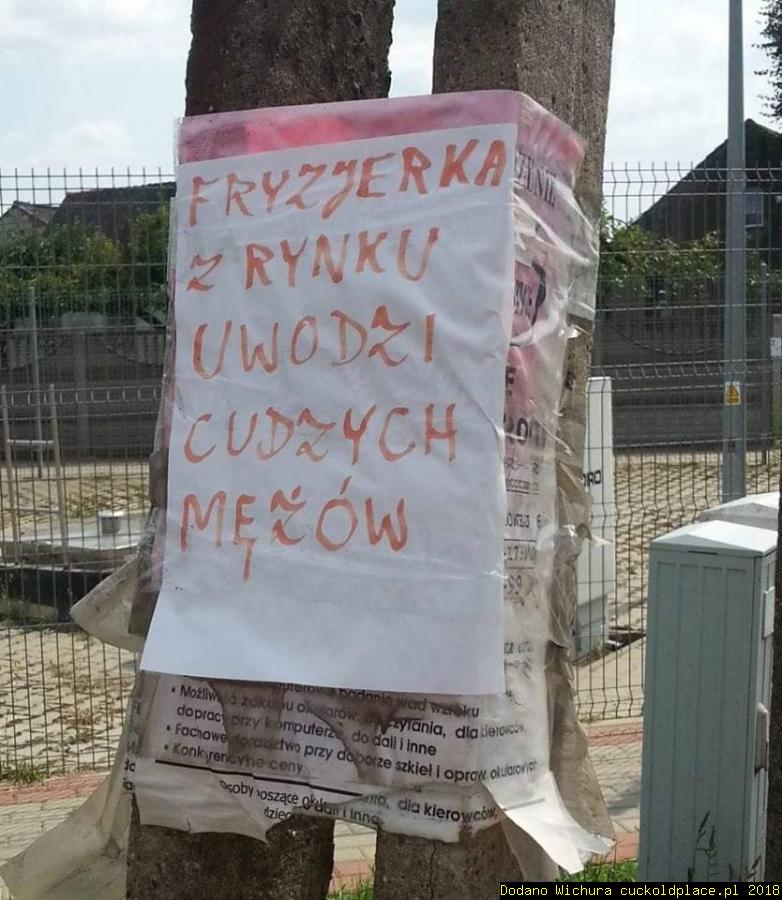 FRYZJERKA
Z RYNKU
UWODZI
CUDZYCH
MĘŻÓW
komputerowe badanie wad wzroku
• Możliwość zakupu okularów do czytania, dla kierowców,
do pracy przy komputerze, do dali i inne
• Fachowe doradztwo przy doborze szkieł i opraw okularowych
• Konkurencyjne ceny
osoby noszące
dla kierowców,
dali i inne
Dodano Wichura cuckoldplace.pl 2018